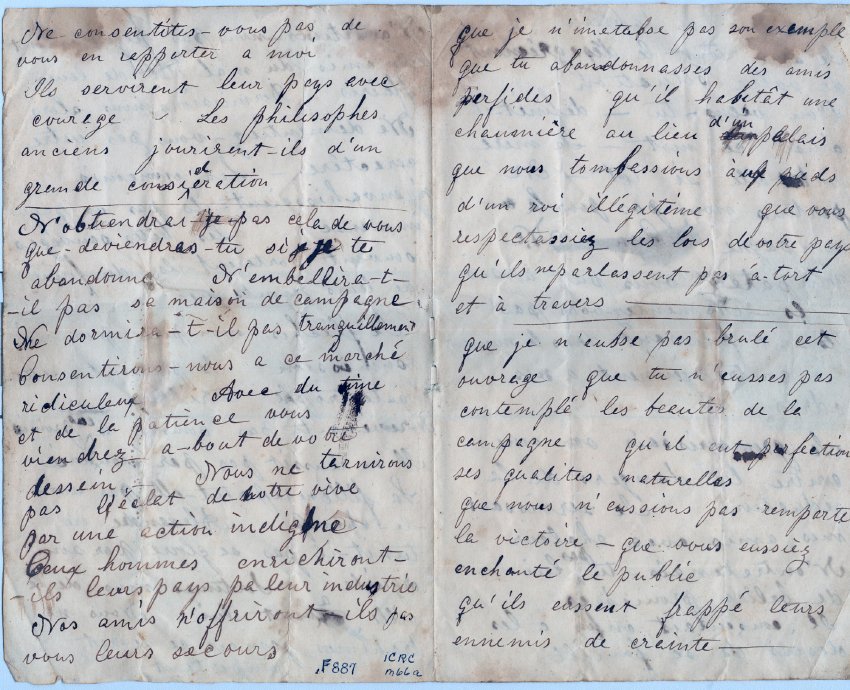 Ne consentites-vous pas de
vous en rapporter a moi
Ils servirent leur pays avec
courage Les philosophes
anciens jouirirent-ils d'un
grende considération
N'obtiendrai-je pas cela de vous
que-deviendras-tu si je te
abandonne N'embellira-t-
-il pas sa maison de campagne
Ne dormira-t-il pas tranquillement
Consentirons-nous a ce marché
ridiculeux Avec du time
et de la patience vous
viendrez a-bout de votre
dessein Nous ne tarnirons
pas l'éclat de notre vive
par une action indigne
Ceux hommes enrichiront-
-ils leurs pays pa leur industrie
Nos amis n'offriront-ils pas
vous leurs secours
F887 ICRC
m66a
que je n'imetasse pas son exemple
que tu abandonnasses des amis
perfides qu'il habitât une
chaumière au lieu d'un palais
que nous tombassions aux pieds
d'un roi illégitéme que vous
respectassiez les lois de votre pays
qu'ils ne parlassent pas à-tort
et à travers
que je n'eusse pas brulé cet
ouvrage que tu n'eusses pas
contemplé les beautés de la
campagne qu'il eut perfection
ses qualites naturelles
que nous n'eussions pas remporte
la victoire - que vous eussiez
enchanté le public
qu'ils eussent frappé leurs
ennemis de crainte